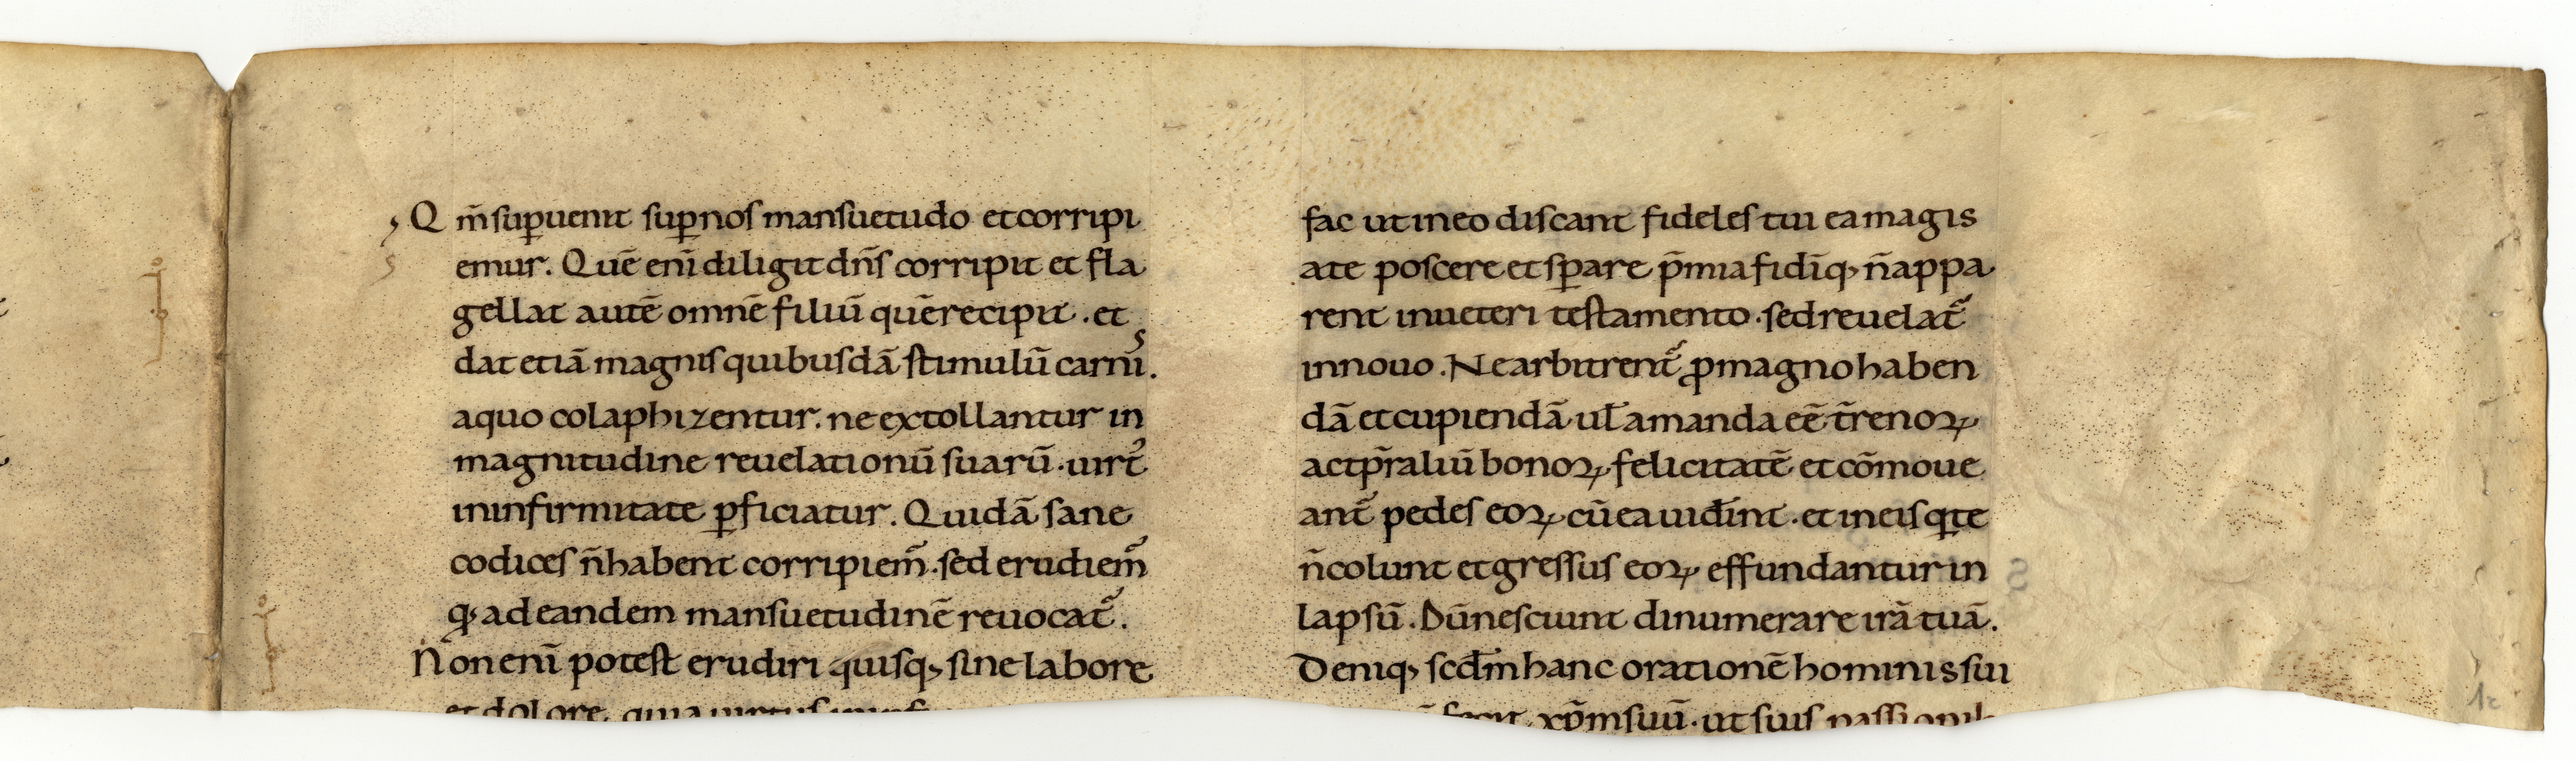 Q m̄ sup̱uenit sup̱ nos mansuetudo et corripi
emur. Quē enī diligit dn̄s corripit et fla
gellat autē omnē filiū quē recipit. et
dat etiā magnis quibusdā stimulū carnis.
a quo colaphizentur. ne extollantur in
magnitudine reuelationū suarū. uirt᷒
in infirmitate p̱ficiatur. Quidā sane
codices n̄ habent corripiem᷒. sed erudiem᷒
q; ad eandem mansuetudinē reuocat᷒.
Non enī potest erudiri quisq; sine labore
et dolore. quia uirtus in inf
fac ut in eo discant fideles tui ea magis
a te poscere et sp̱are p̄mia fidīq; n̄ appa
rent in ueteri testamento. sed reuelat᷒
in nouo. Ne arbitrent᷒ ꝓ magno haben
dā et cupiendā ul̄ amanda eē t̄renoꝝ
ac tp̄raliū bonoꝝ felicitatē et cōmoue
ant᷒ pedes eoꝝ cū ea uid̄int. et in eis q̱ te
n̄ colunt et gressus eoꝝ effundantur in
lapsū. Dū nesciunt dinumerare irā tuā.
Deniq; scd̄m hanc orationē hominis sui
fecit xp̄m suū. ut suis passionib